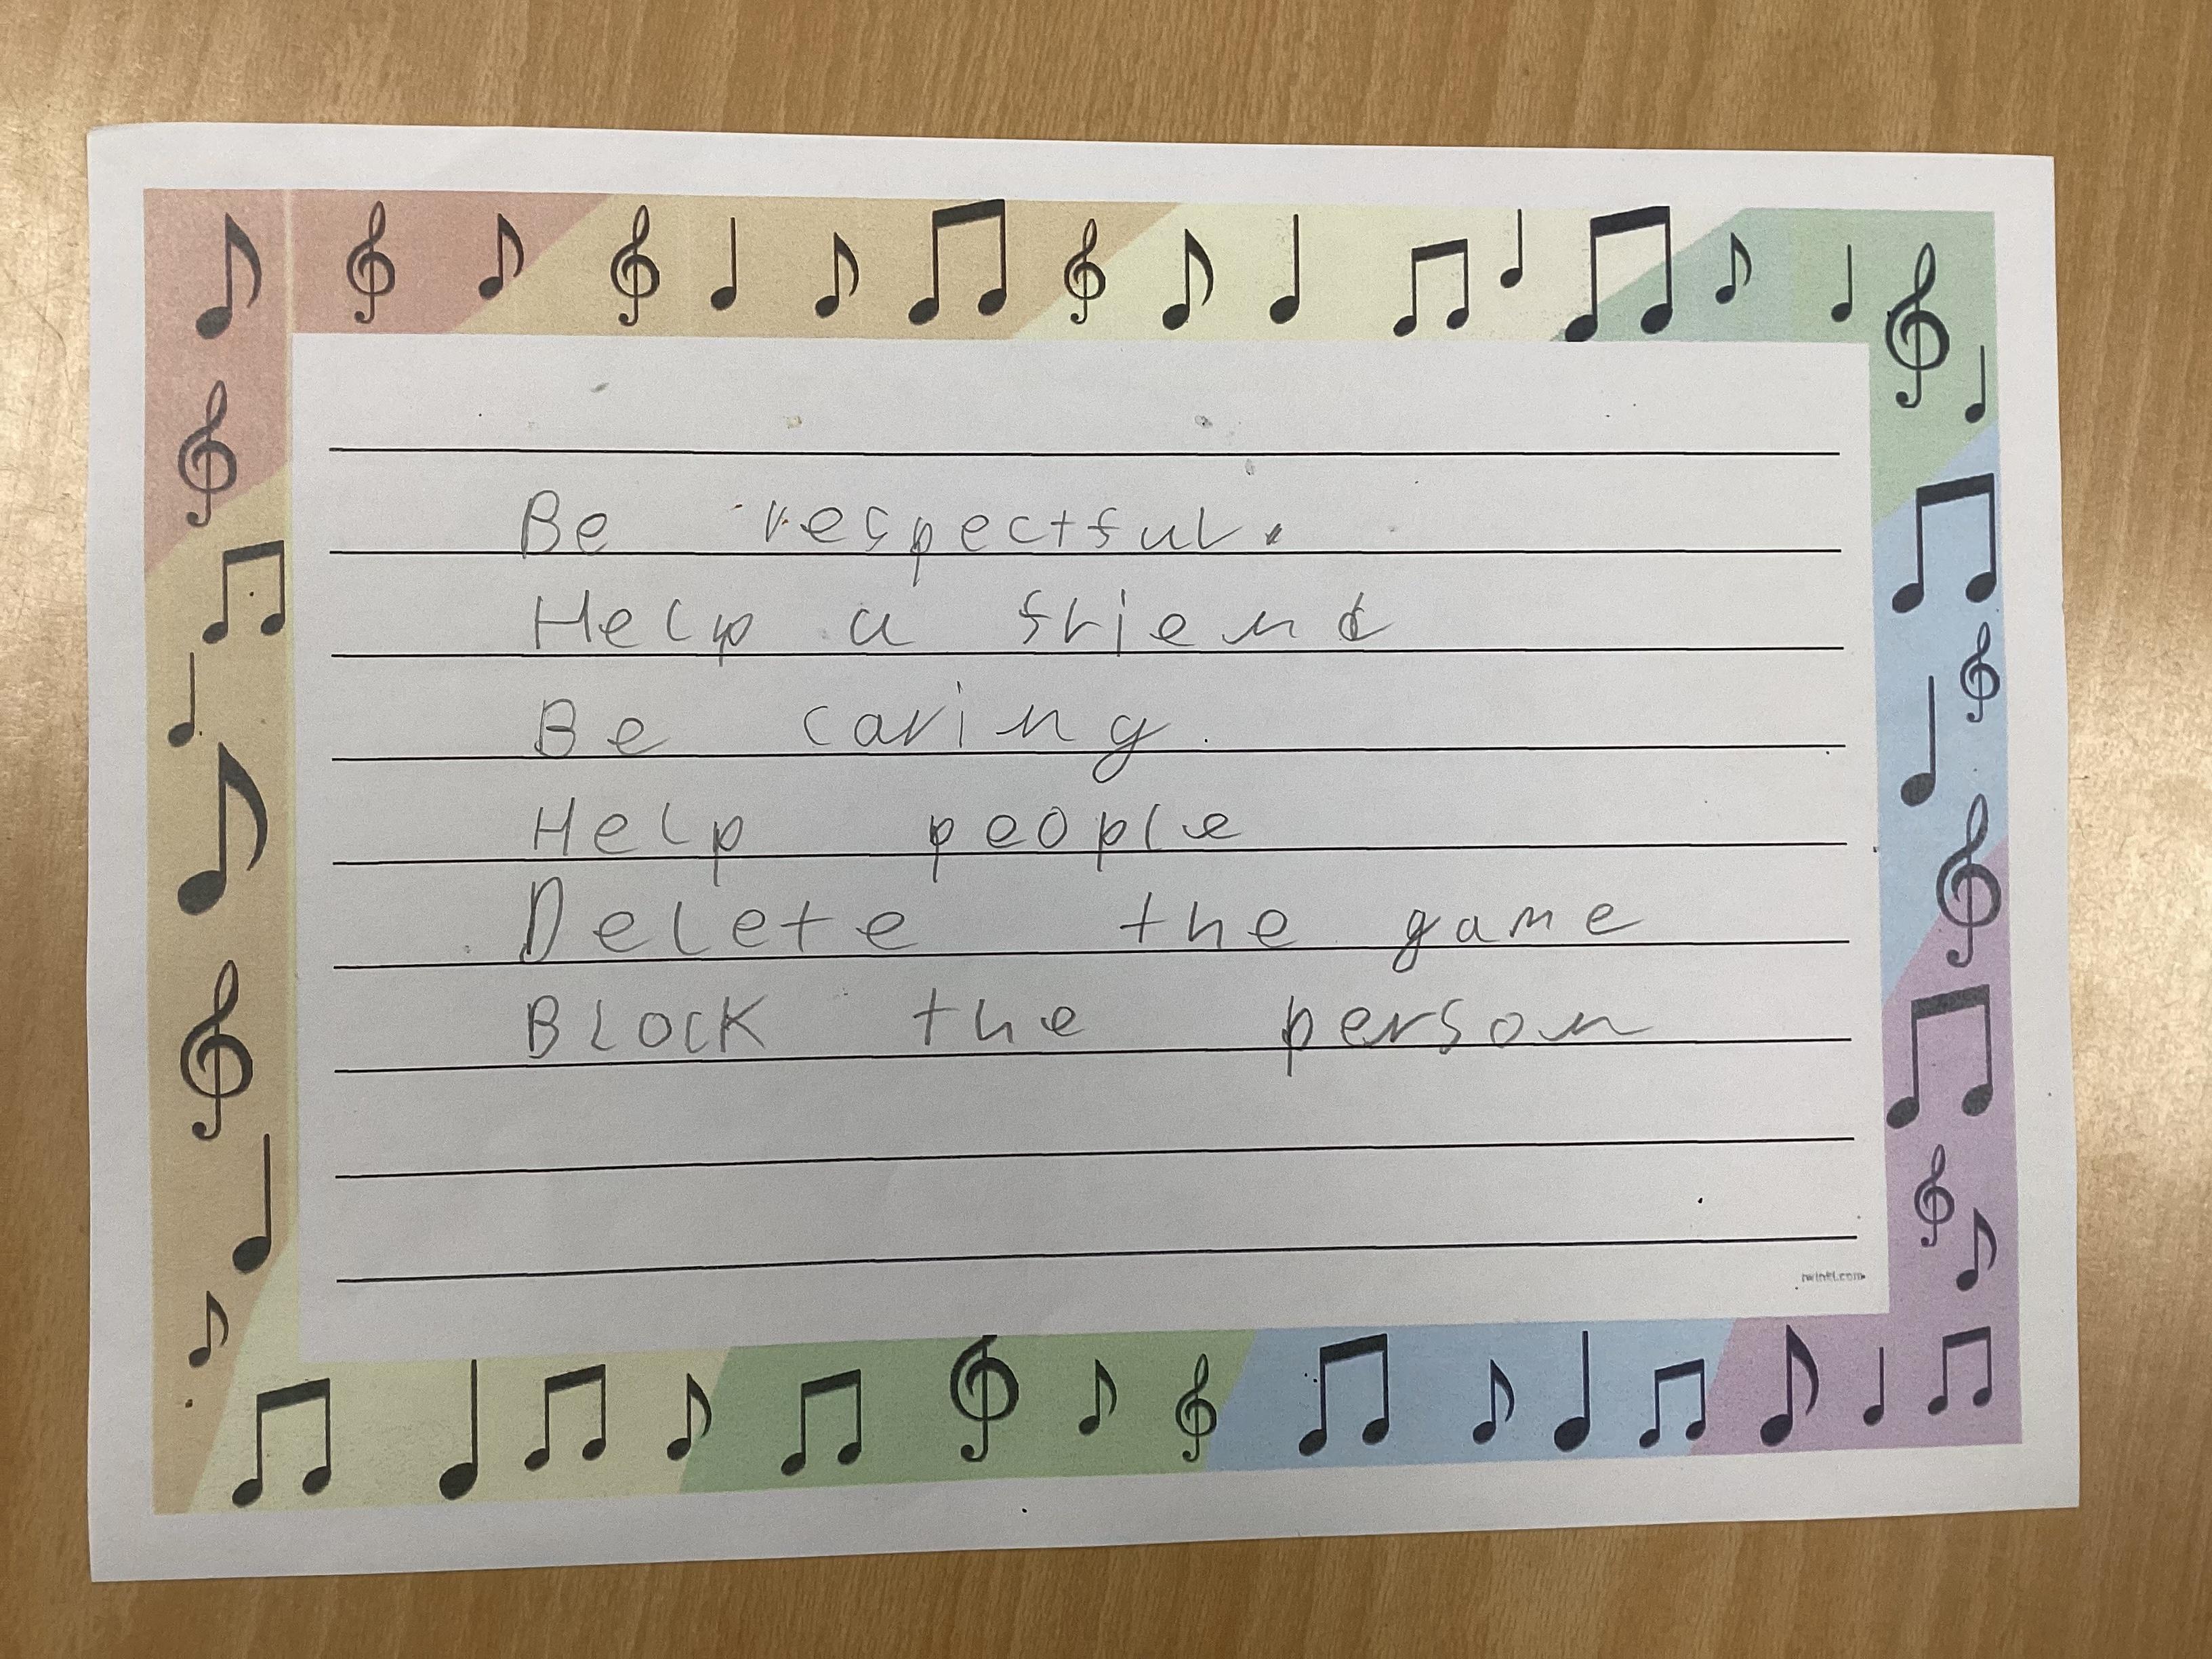 Be respectful.
Help a friend
Be caring.
Help people
Delete the game
Block the person
twinkl.com